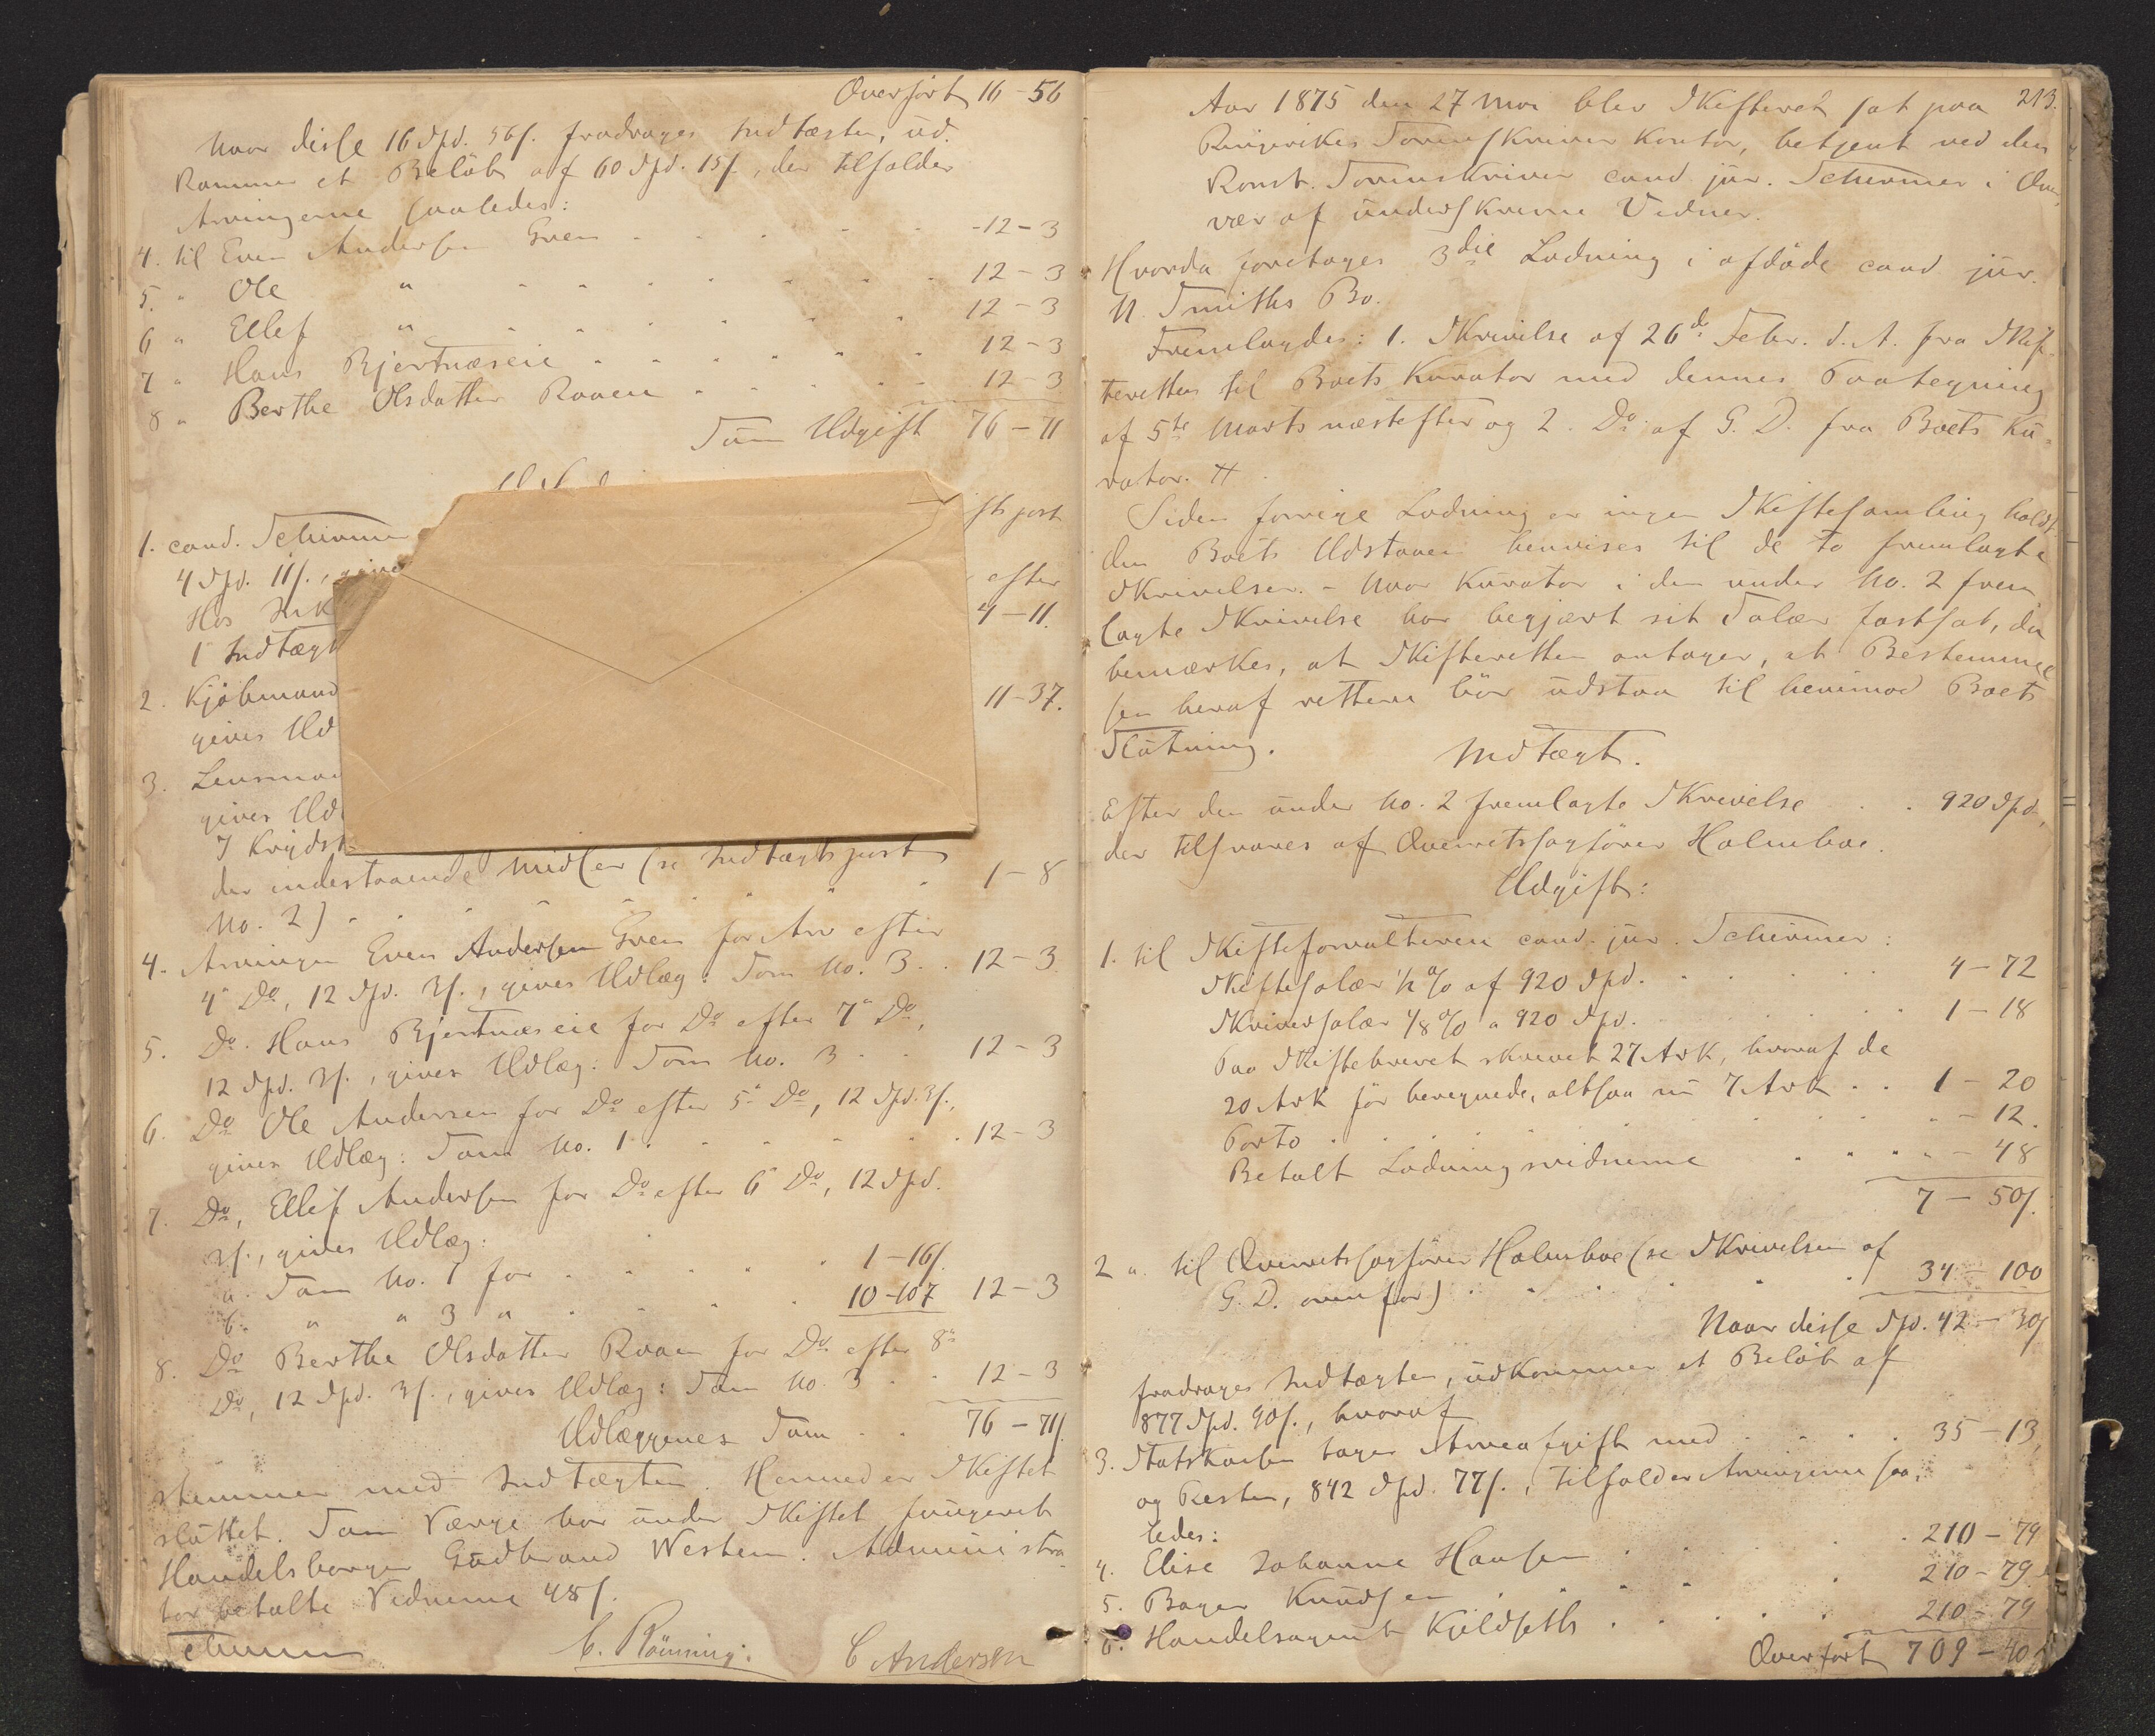 Overført 16 - 56
Naar disse 16 Spd. 56 s. fradrages Indtægten, ud-
kommer et Beløb af 60 Spd. 15 s., der tilfalder
Arvingerne saaledes:
4. til Even Andersen Gren - 12 - 3
5. " Ole " 12 - 3
6 " Ellef " 12 - 3
7 " Hans Bjertnæseie 12 - 3
8 " Berthe Olsdatter Raaen 12 - 3
Sum Udgift 76 - 71
1. cand. Schirmer
ftspost
4 Spd. 11 s., give
efter
Hos
4 - 11.
1 Indtægt
2. Kjøbmand
11 - 37.
gives Ud
3. Lensman
gives Ud
der indestaaende Midler (se Indtægtspost
No. 2) 1 - 8
4. Arvingen Even Andersen Gren for Arv efter
4" Do, 12 Spd. 3 s., gives Udlæg: Som No. 3. 12 - 3
5. Do. Hans Bjertnæseie for Do efter 7" Do,
12 Spd. 3 s., gives Udlæg: Som No. 3 12 - 3
6. Do Ole Andersen for Do efter 5" Do, 12 Spd. 3 s.,
gives Udlæg: Som No. 1 12 - 3
7. Do, Ellef Andersen for Do efter 6" Do, 12 Spd.
3 s., gives Udlæg:
a. Som No. 1 for 1 - 16 s.
b. " " 3 " 10 - 107 12 - 3
8. Do Berthe Olsdatter Raaen for Do efter 8"
Do, 12 Spd. 3 s., gives Udlæg: Som No. 3 12 - 3
Udlæggenes Sum 76 - 71 s.
stemmer med Indtægten. Hermed er Skiftet
sluttet. Som Værge har under Skiftet fungeret
Handelsborger Gudbrand Western. Administra-
tor betalte Vidnerne 48 s.
Schirmer C. Rønning. C Andersen
213.
Aar 1875 den 27 Mai blev Skifteret sat paa
Ringerikes Sorenskriver Kontor, betjent ved den
Konst. Sorenskriver cand. jur. Schirmer i Over-
vær af underskrevne Vidner.
Hvorda foretages 3die Lodning i afdøde cand. jur.
N. Smiths Bo.
Fremlagdes: 1. Skrivelse af 26de Febr. d. A. fra Skif-
teretten til Boets Kurator med dennes Paategning
af 5te Marts næstefter og 2. Do af G. D. fra Boets Ku-
rator. #
Siden forrige Lodning er ingen Skiftesamling holdt.
Om Boets Udstaaen henvises til de to fremlagte
Skrivelser. - Naar Kurator i den under No. 2 frem
lagte Skrivelse har begjært sit Salær fastsat, da
bemærkes, at Skifteretten antager, at Bestemmel
sen heraf rettere bør udstaa til henimod Boets
Slutning.
Indtægt.
Efter den under No. 2 fremlagte Skrivelse 920 Spd.,
der tilsvares af Overretssagfører Holmboe.
Udgift:
1. til Skifteforvalteren cand. jur. Schirmer:
Skiftesalær 1/2 % af 920 Spd. 4 - 72
Skriversalær 1/8 % a 920 Spd. 1 - 18
Paa Skiftebrevet skrevet 27 Ark, hvoraf de
20 Ark før beregnede, altsaa nu 7 Ark 1 - 20
Porto - 12.
Betalt Lodningsvidnerne - 48
7 - 50 s.
2 " til Overretssagfører Holmboe (se Skrivelsen af
G. D. ovenfor) 34 - 100
Naar disse Spd. 42 - 30 s
fradrages Indtægten, udkommer et Beløb af
877 Spd. 90 s., hvoraf
3. Statskassen tager Arveafgift med 35 - 13,
og Resten, 842 Spd. 77 s., tilfalder Arvingerne saa-
ledes:
4. Elise Johanne Hansen 210 - 79
5. Bager Knudsen 210 - 79
6. Handelsagent Kjeldseth 210 - 79
Overført 709 - 40 s